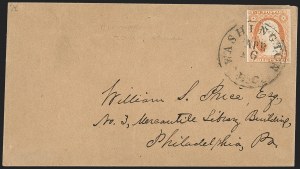 WASHINGTON
D.C.
William S. Price, Esq,
No. 3, Mercantile Library Building,
Philadelphia, Pa.